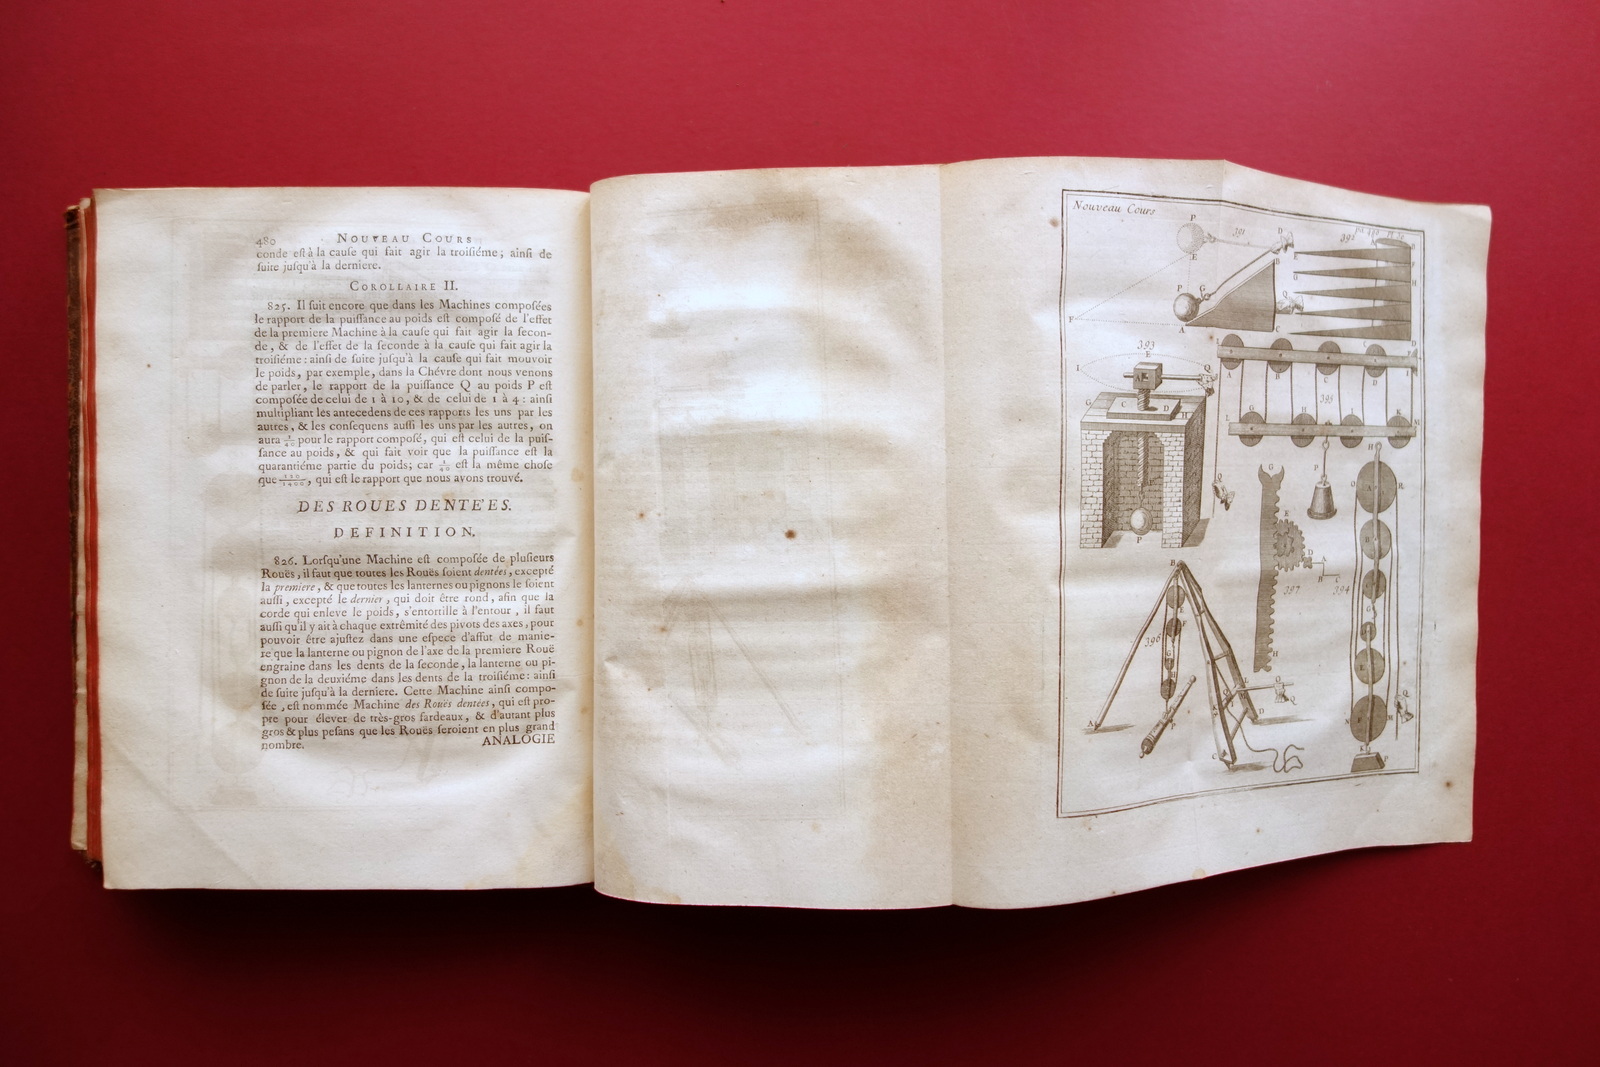 480 NOUVEAU COURS
conde est à la cause qui fait agir la troisiéme; ainsi de
suite jusqu'à la derniere.
COROLLAIRE II.
825. Il suit encore que dans les Machines composées
le rapport de la puissance au poids est composé de l'effet
de la premiere Machine à la cause qui fait agir la secon-
de, & de l'effet de la seconde à la cause qui fait agir la
troisiéme: ainsi de suite jusqu'à la cause qui fait mouvoir
le poids, par exemple, dans la Chévre dont nous venons
de parler, le rapport de la puissance Q au poids P est
composée de celui de 1 à 10, & de celui de 1 à 4: ainsi
multipliant les antecedens de ces rapports les uns par les
autres, & les consequens aussi les uns par les autres, on
aura 1/40 pour le rapport composé, qui est celui de la puis-
sance au poids, & qui fait voir que la puissance est la
quarantiéme partie du poids; car 1/40 est la même chose
que, qui est le rapport que nous avons trouvé.
DES ROUES DENTE'ES.
DEFINITION.
826. Lorsqu'une Machine est composée de plusieurs
Rouës, il faut que toutes les Rouës soient dentées, excepté
la premiere, & que toutes les lanternes ou pignons le soient
aussi, excepté le dernier, qui doit être rond, afin que la
corde qui enleve le poids, s'entortille à l'entour, il faut
aussi qu'il y ait à chaque extrêmité des pivots des axes, pour
pouvoir être ajustez dans une espece d'affut de manie-
re que la lanterne ou pignon de l'axe de la premiere Rouë
engraine dans les dents de la seconde, la lanterne ou pi-
gnon de la deuxiéme dans les dents de la troisiéme: ainsi
de suite jusqu'à la derniere. Cette Machine ainsi compo-
sée, est nommée Machine des Rouës dentées, qui est pro-
pre pour élever de très-gros fardeaux, & d'autant plus
gros & plus pesans que les Rouës seroient en plus grand
nombre. ANALOGIE
Nouveau Cours
P
391
D
E
B
P G
F
A C
393
E
I
A Q
G C D H
P
D
A B C D I
395
L G H K M
P
H
G
K
D A
B C
397
H
394
O A R
B
G
E
N F M
Q
P
B
E
F
396
G
H
L Q
A D
C